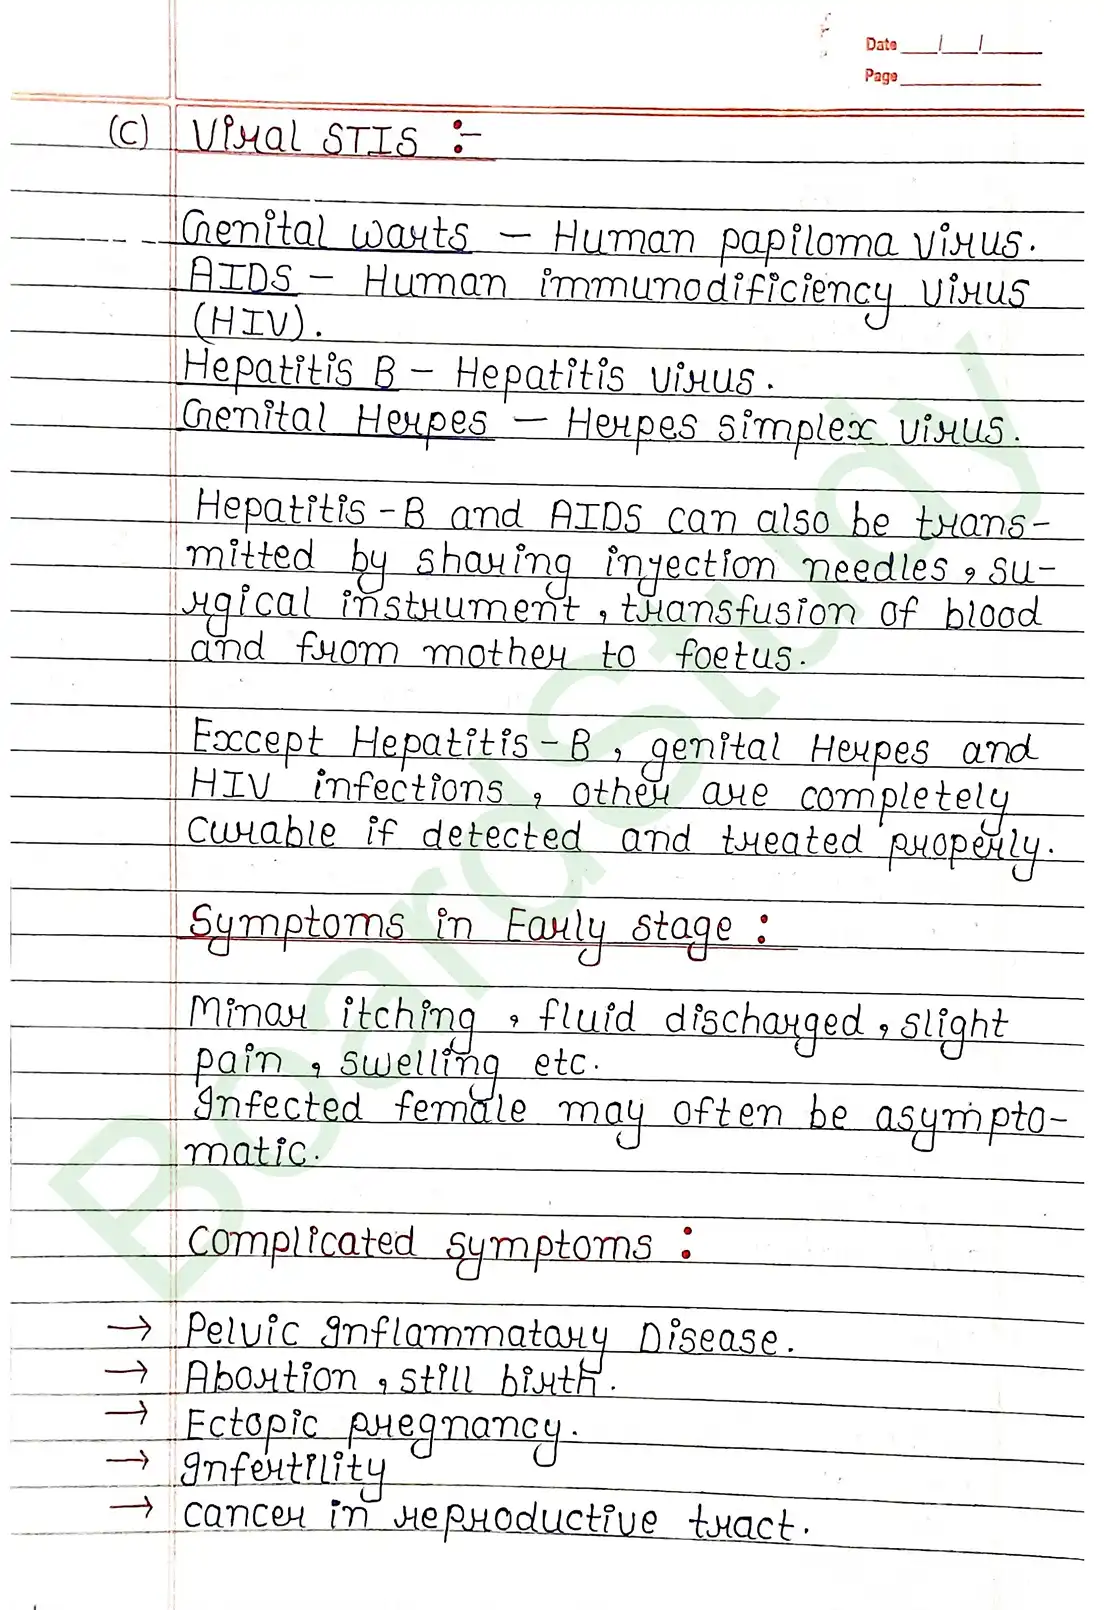 Date / /
Page
(C) Viral STIS :-
Genital warts – Human papiloma virus.
AIDS – Human immunodificiency virus
(HIV).
Hepatitis B – Hepatitis virus.
Genital Herpes – Herpes simplex virus.
Hepatitis-B and AIDS can also be trans-
mitted by sharing injection needles, su-
rgical instrument, transfusion of blood
and from mother to foetus.
Except Hepatitis-B, genital Herpes and
HIV infections, other are completely
curable if detected and treated properly.
Symptoms in Early stage :
Minor itching, fluid discharged, slight
pain, swelling etc.
Infected female may often be asympto-
matic.
complicated symptoms :
→ Pelvic Inflammatory Disease.
→ Abortion, still birth.
→ Ectopic pregnancy.
→ Infertility
→ cancer in reproductive tract.
BoardStudy